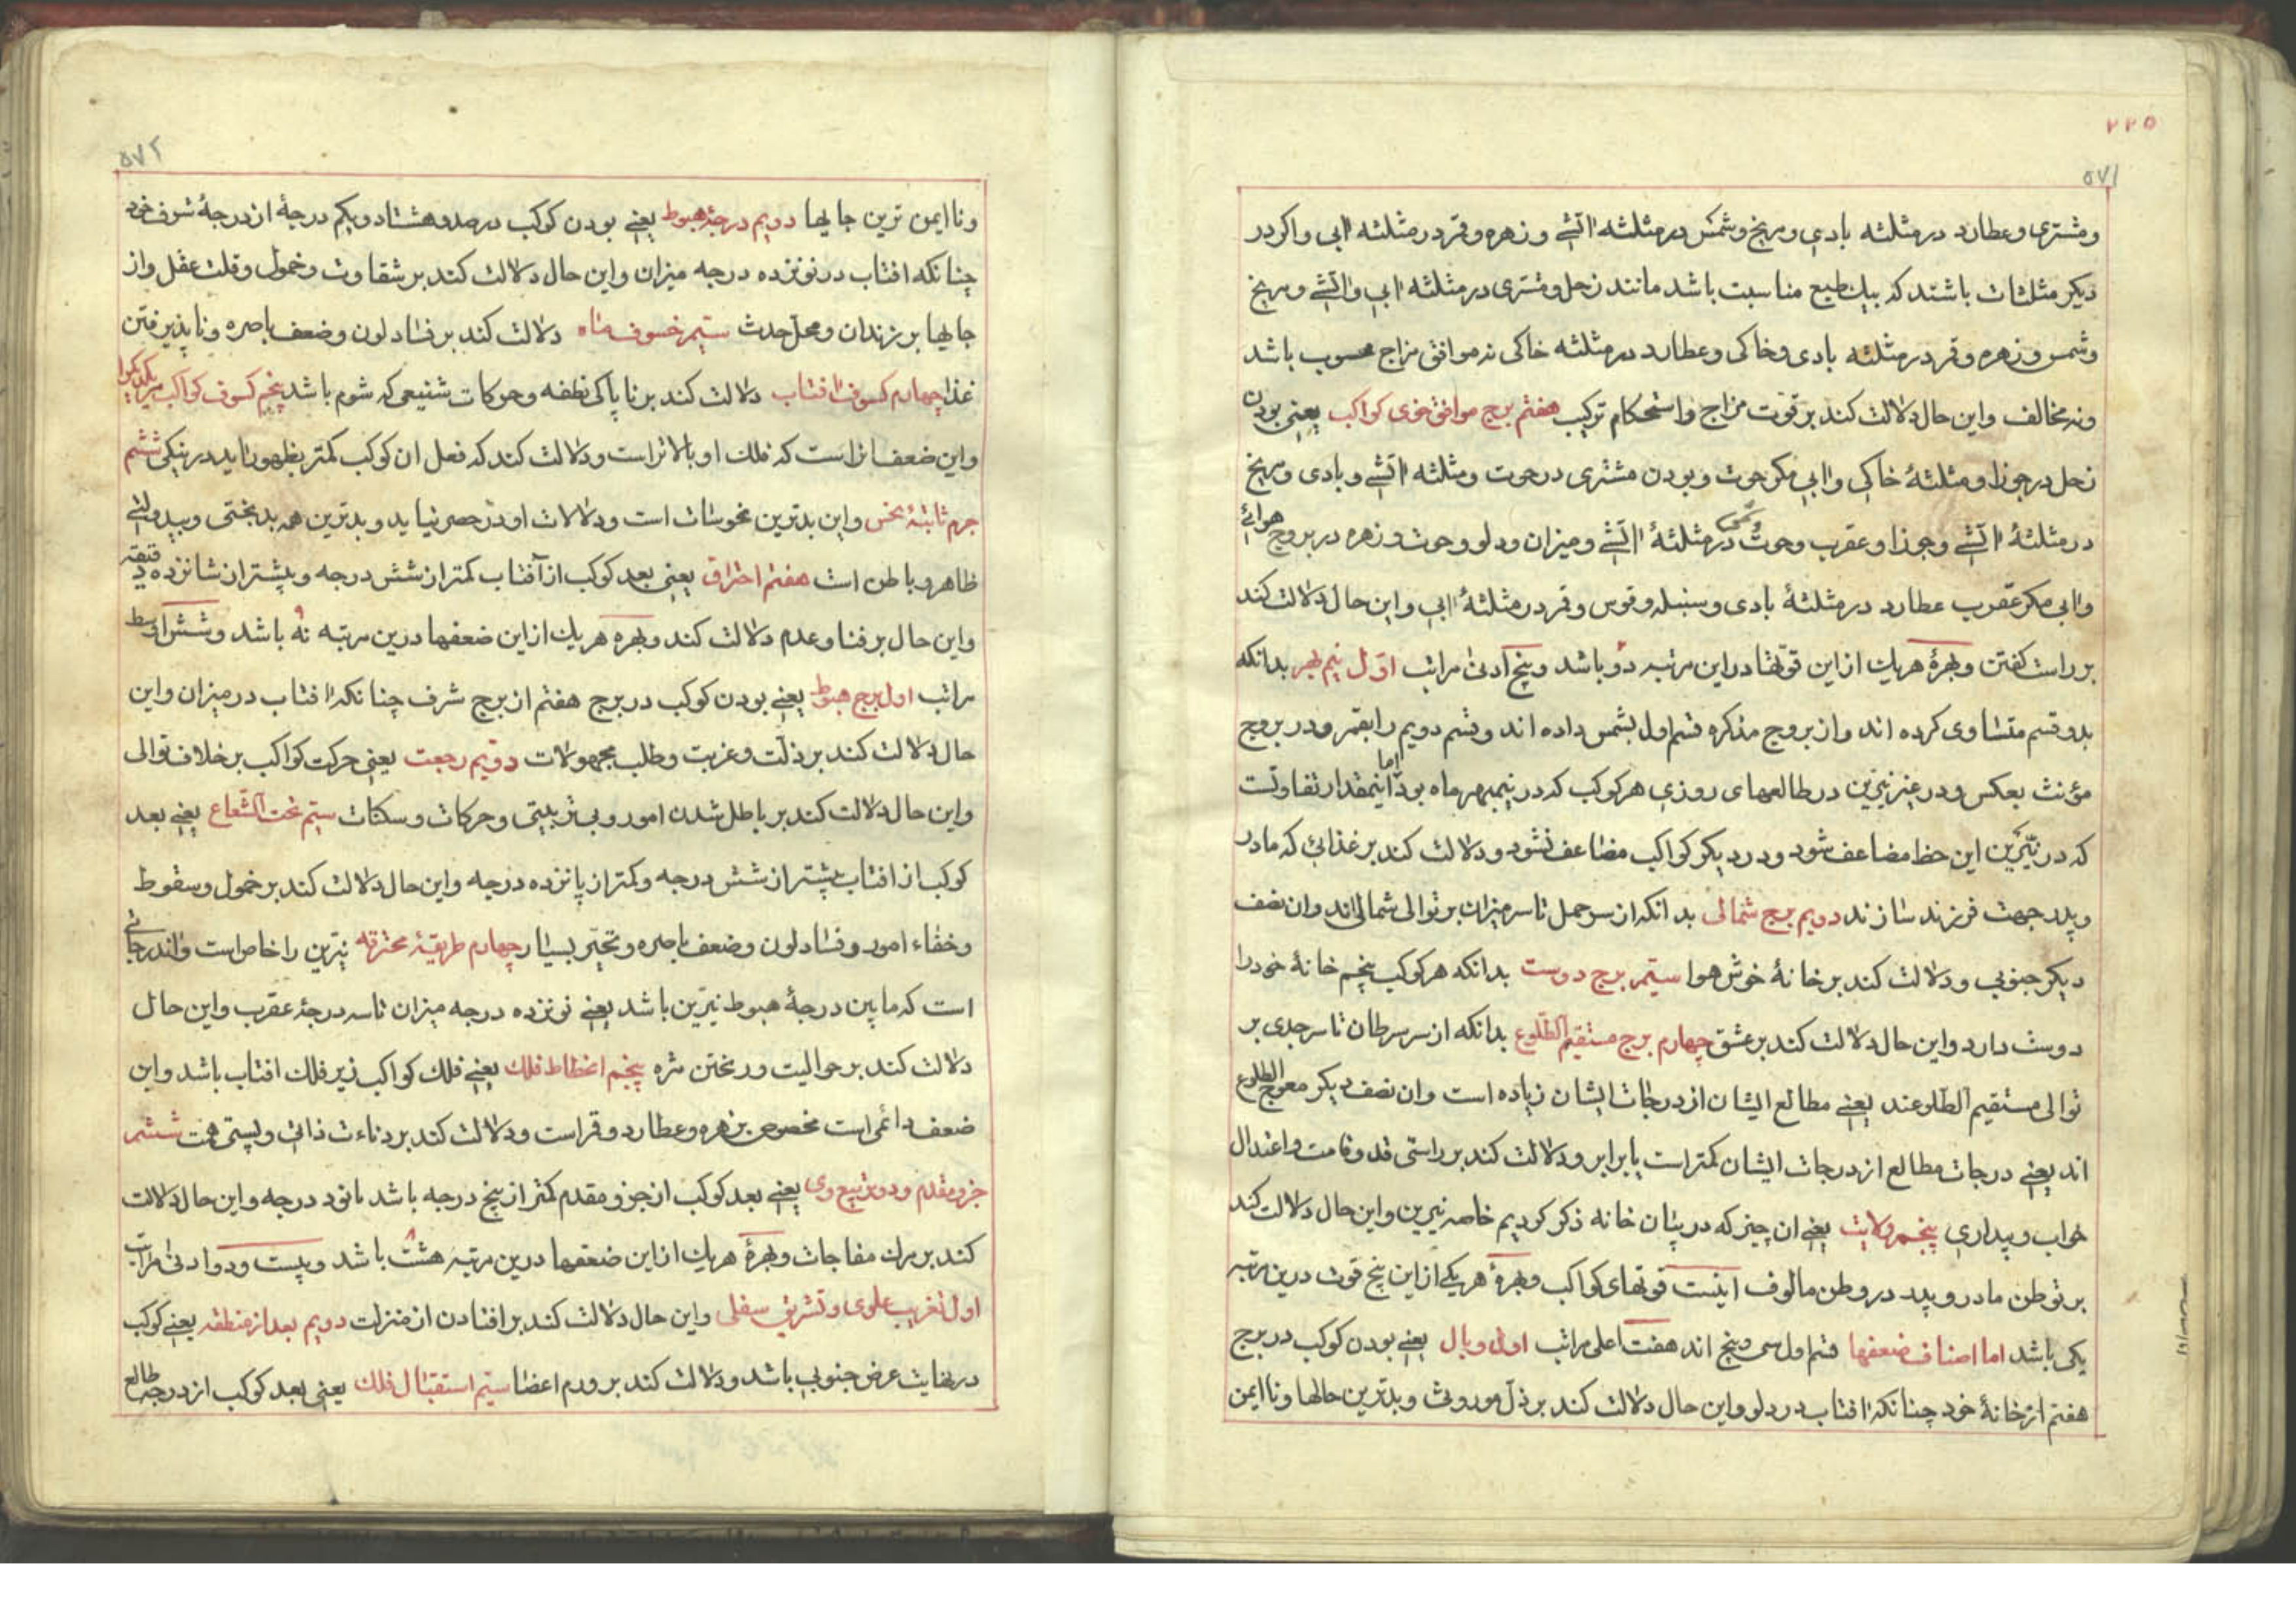 ٢٢٥
٥٧١
ومشتری وعطارد در مثلثه بادی ومریخ وشمس در مثلثه اتشی وزهره وقمر در مثلثه ابی واکر در
دیکر مثلثات باشند که بیک طبع مناسبت باشد مانند زحل ومشتری در مثلثه ابی واتشی ومریخ
وشمس وزهره وقمر در مثلثه بادی وخاکی وعطارد در مثلثه خاکی نه موافق مزاج محسوب باشد
ونه مخالف واین حال دلالت کند بر قوت مزاج واستحکام ترکیب هفتم برج موافق خوی کواکب یعنی بودن
زحل در جوزا ومثلثهٔ خاکی وابی مکر حوت وبودن مشتری در حوت ومثلثه اتشی وبادی ومریخ
در مثلثهٔ اتشی وجوزا وعقرب وحوت وشمس در مثلثهٔ اتشی ومیزان ودلو وحوت وزهره در بروج هوائی
وابی مکر عقرب عطارد در مثلثهٔ بادی وسنبله وقوس وقمر در مثلثهٔ ابی واین حال دلالت کند
بر راست کفتن وبهرهٔ هریک از این قوتها در این مرتبه دو باشد وپنج ادنی مراتب اول نیم بهر بدانکه
بدو قسم متساوی کرده اند واز بروج مذکره قسم اول بشمس داده اند وقسم دویم را بقمر ودر بروج
مؤنث بعکس ودر غیر نیرین در طالعهای روزی هر کوکب که در نیمبهر ماه بود اما اینمقدار تفاوتست
که در نیّرین این حظ مضاعف شود ودر دیکر کواکب مضاعف نشود ودلالت کند بر غذائی که مادر
وپدر جهت فرزند سازند دویم برج شمالی بدانکه از سر حمل تا سر میزان بر توالی شمالی اند وان نصف
دیکر جنوبی ودلالت کند بر خانهٔ خوش هوا سیّم برج دوست بدانکه هر کوکب پنجم خانهٔ خود را
دوست دارد واین حال دلالت کند بر عشق چهارم برج مستقیم الطلوع بدانکه از سر سرطان تا سر جدی بر
توالی مستقیم الطلوعند یعنی مطالع ایشان از درجات ایشان زیاده است وان نصف دیکر معوج الطلوع
اند یعنی درجات مطالع از درجات ایشان کمتر است یا برابر ودلالت کند بر راستی قد وقامت واعتدال
خواب وبیداری پنجم ولایت یعنی ان چیز که در بیان خانه ذکر کردیم خاصه نیرین واین حال دلالت کند
بر توطن مادر وپدر در وطن مالوف اینست قوتهای کواکب وبهرهٔ هریکی از این پنج قوت درین مرتبه
یکی باشد اما اصناف ضعفها قسم اول سی وپنج اند هفت اعلی مراتب اول وبال یعنی بودن کوکب در برج
هفتم از خانهٔ خود چنانکه افتاب در دلو واین حال دلالت کند بر ذل موروثی وبدترین حالها ونا ایمن
٥٧٢
ونا ایمن ترین جایها دویم درجهٔ هبوط یعنی بودن کوکب در صد وهشتاد ویکم درجهٔ از درجهٔ شرف خود
چنانکه افتاب در نوزده درجه میزان واین حال دلالت کند بر شقاوت وخمول وقلت عقل واز
جایها بر زندان ومحل حدث سیّم خسوف ماه دلالت کند بر فساد لون وضعف باصره وناپذیرفتن
غذا چهارم کسوف افتاب دلالت کند بر ناپاکی نطفه وحرکات شنیعی که شوم باشد پنجم کسوف کواکب مر یکدیکر را
واین ضعف انراست که فلک او بالاتر است ودلالت کند که فعل ان کوکب کمتر بظهور اید در نیکی ششم
جرم ثابتهٔ نحس واین بدترین نحوسات است ودلالات او در حصر نیاید وبدترین همه بدبختی وبیدولتی
ظاهر وباطن است هفتم احتراق یعنی بعد کوکب از آفتاب کمتر از شش درجه وبیشتر از شانزده دقیقه
واین حال بر فنا وعدم دلالت کند وبهره هریک از این ضعفها درین مرتبه نه باشد وشش اوسط
مراتب اول برج هبوط یعنی بودن کوکب در برج هفتم از برج شرف چنانکه افتاب در میزان واین
حال دلالت کند بر ذلّت وغربت وطلب مجهولات دویم رجعت یعنی حرکت کواکب بر خلاف توالی
واین حال دلالت کند بر باطل شدن امور وبی ترتیبی وحرکات وسکنات سیّم تحت الشعاع یعنی بعد
کوکب از افتاب بیشتر از شش درجه وکمتر از پانزده درجه واین حال دلالت کند بر خمول وسقوط
وخفاء امور وفساد لون وضعف باصره وتحیّر بسیار چهارم طریقهٔ محترقه نیّرین را خاص است واندر جائی
است که مابین درجهٔ هبوط نیرین باشد یعنی نوزده درجه میزان تا سه درجهٔ عقرب واین حال
دلالت کند بر حوالیت وریختن مژه پنجم انحطاط فلک یعنی فلک کواکب زیر فلک افتاب باشد واین
ضعف دائمی است مخصوص بزهره وعطارد وقمر است ودلالت کند بر دناءت ذاتی وپستی همت ششم
جزو مقدم ودو تربیع وی یعنی بعد کوکب از جزو مقدم کمتر از پنج درجه باشد یا نود درجه واین حال دلالت
کند بر مرک مفاجات وبهرهٔ هریک از این ضعفها درین مرتبه هشت باشد وبیست ودو ادنی مراتب
اول تغریب علوی وتشریق سفلی واین حال دلالت کند بر افتادن از منزلت دویم بعد از منطقه یعنی کوکب
در نهایت عرض جنوبی باشد ودلالت کند بر ورم اعضا سیّم استقبال فلک یعنی بعد کوکب از درجه طالع